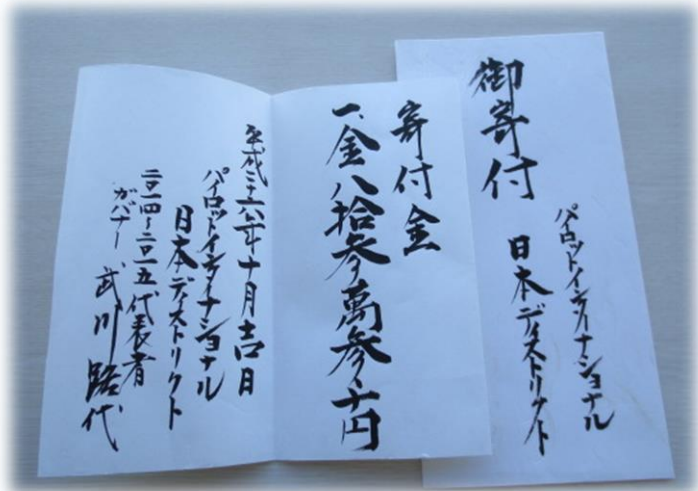 御寄付
パイロットインターナショナル
日本ディストリクト
寄付金
一、金八拾参萬参千円
平成二十六年十月吉日
パイロットインターナショナル
日本ディストリクト
二〇一四~二〇一五代表者
ガバナー 武川路代